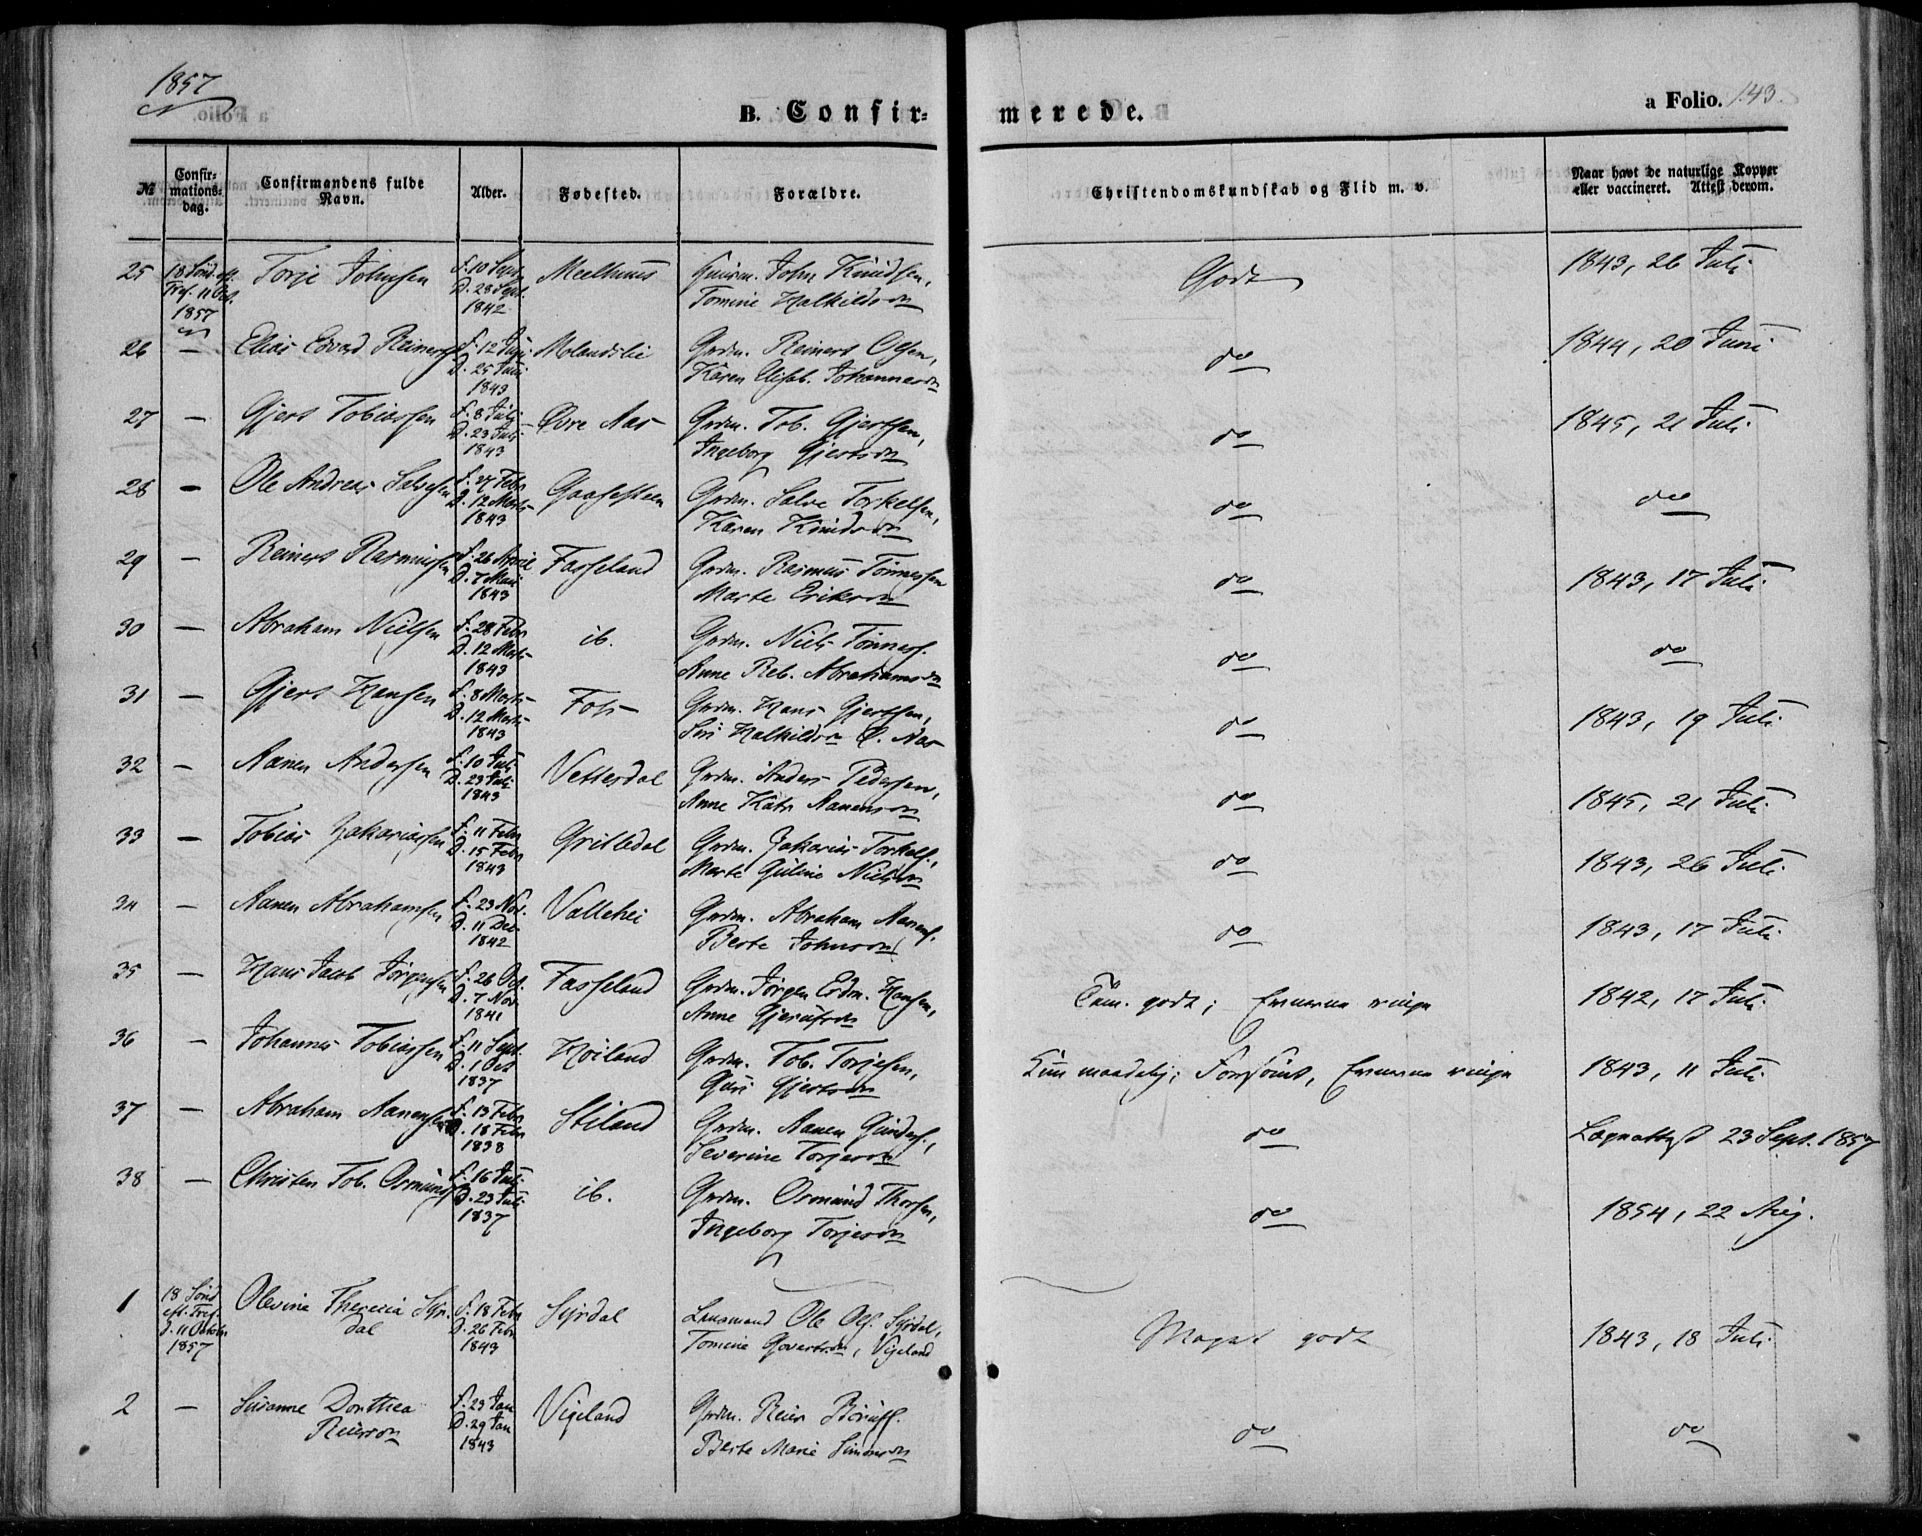 1857
B. Confirmerede.
a Folio. 143.
№ | Confirmationsdag. | Confirmandens fulde Navn. | Alder. | Fødested. | Forældre. | Christendomskundskab og Flid m. v. | Naar havt de naturlige Kopper eller vaccineret. Attest derom.
25 | 18 Sönd. eft. Tref. 11 Oct. 1857 | Torje Johnsen | F. 10 Sept. D. 28 Sept. 1842 | Meelhuus | John Knudsen, Tomine Halkildsdn | Godt | 1843, 26 Juli
26 | — | Elias Edvard Reinerts | F. 12 D. 25 Juni 1843 | Molandslie | Grdm. Reinert Olsen, Karen Elisab. Johannesdn | do | 1844, 20 Juni
27 | — | Gjert Tobiassen | F. 8 Juli D. 23 Juli 1843 | Övre Aas | Grdm. Tob. Gjertsen, Ingeborg Gjertsdn | do | 1845, 21 Juli
28 | — | Ole Andreas Salvesen | F. 27 Febr D. 12 Marts 1843 | Gaasesteen | Grdm. Salve Torkelsen, Karen Knudsdn | do | do
29 | — | Reinert Rasmussen | F. 26 April D. 7 Mai 1843 | Fasseland | Grdm. Rasmus Tönnessen Marte Eriksdn | do | 1843, 17 Juli
30 | — | Abraham Nielsen | F. 28 Febr D. 12 Marts 1843 | ib. | Grdm. Niels Tönness. Anne Reb. Abrahamsdn | do | do
31 | — | Gjert Hansen | F. 8 Marts D. 12 Marts 1843 | Foss | Grdm. Hans Gjertsen, Siri Halkildsdn Ö. Aas | do | 1843, 19 Juli
32 | — | Aanen Andersen | F. 10 Juli D. 23 Juli 1843 | Vettesdal | Grdm. Anders Pedersen, Anne Katr. Aanensdn | do | 1845, 21 Juli
33 | — | Tobias Zakariassen | F. 11 Febr D. 15 Febr 1843 | Gritledal | Grdm. Zakarias Torkels., Marte Guline Nielsdn | do | 1843, 26 Juli
34 | — | Aanen Abrahamsen | F. 23 Nov. D. 11 Dec 1842 | Vallehei | Grdm. Abraham Aanens. Berte Johnsdn | do | 1843, 17 Juli
35 | — | Hans Jacob Jörgensen | F. 26 Oct. D. 7 Nov. 1841 | Fasseland | Grdm. Jörgen Edm. Hansen, Anne | Tem. godt; Evnerne ringe | 1842, 17 Juli
36 | — | Johannes Tobiassen | F. 11 Sept. D. 1 Oct 1837 | Höiland | Grdm. Tob. Torjesen, Guri Gjertsdn | Kun maadelig; Forsömt, Evnerne ringe | 1843, 11 Juli
37 | — | Abraham Aanensen | F. 13 Febr D. 18 Febr 1838 | Stiland | Grdm. Aanen Gunders., Severine Torjesdn | do | Lægeattest 23 Sept. 1857
38 | — | Christen Tob. Osmunds. | F. 16 Juli D. 23 Juli 1837 | ib. | Grdm. Osmund Thorsen, Ingeborg Torjesdn | do | 1854, 22 Aug.
1 | 18 Sönd eft. Tref. d. 11 Octobr 1857 | Olevine Theresia Syrdal | F. 18 Febr D. 26 Febr 1843 | Syrdal | Lensmand Ole Ols. Syrdal, Tomine Govertsdn, Vigeland | Meget godt | 1843, 18 Juli
2 | — | Susanne Dorthea Reiersdn | F. 23 Jan D. 29 Jan 1843 | Vigeland | Grdm. Reier Berte Marie Simonsdn | do | do